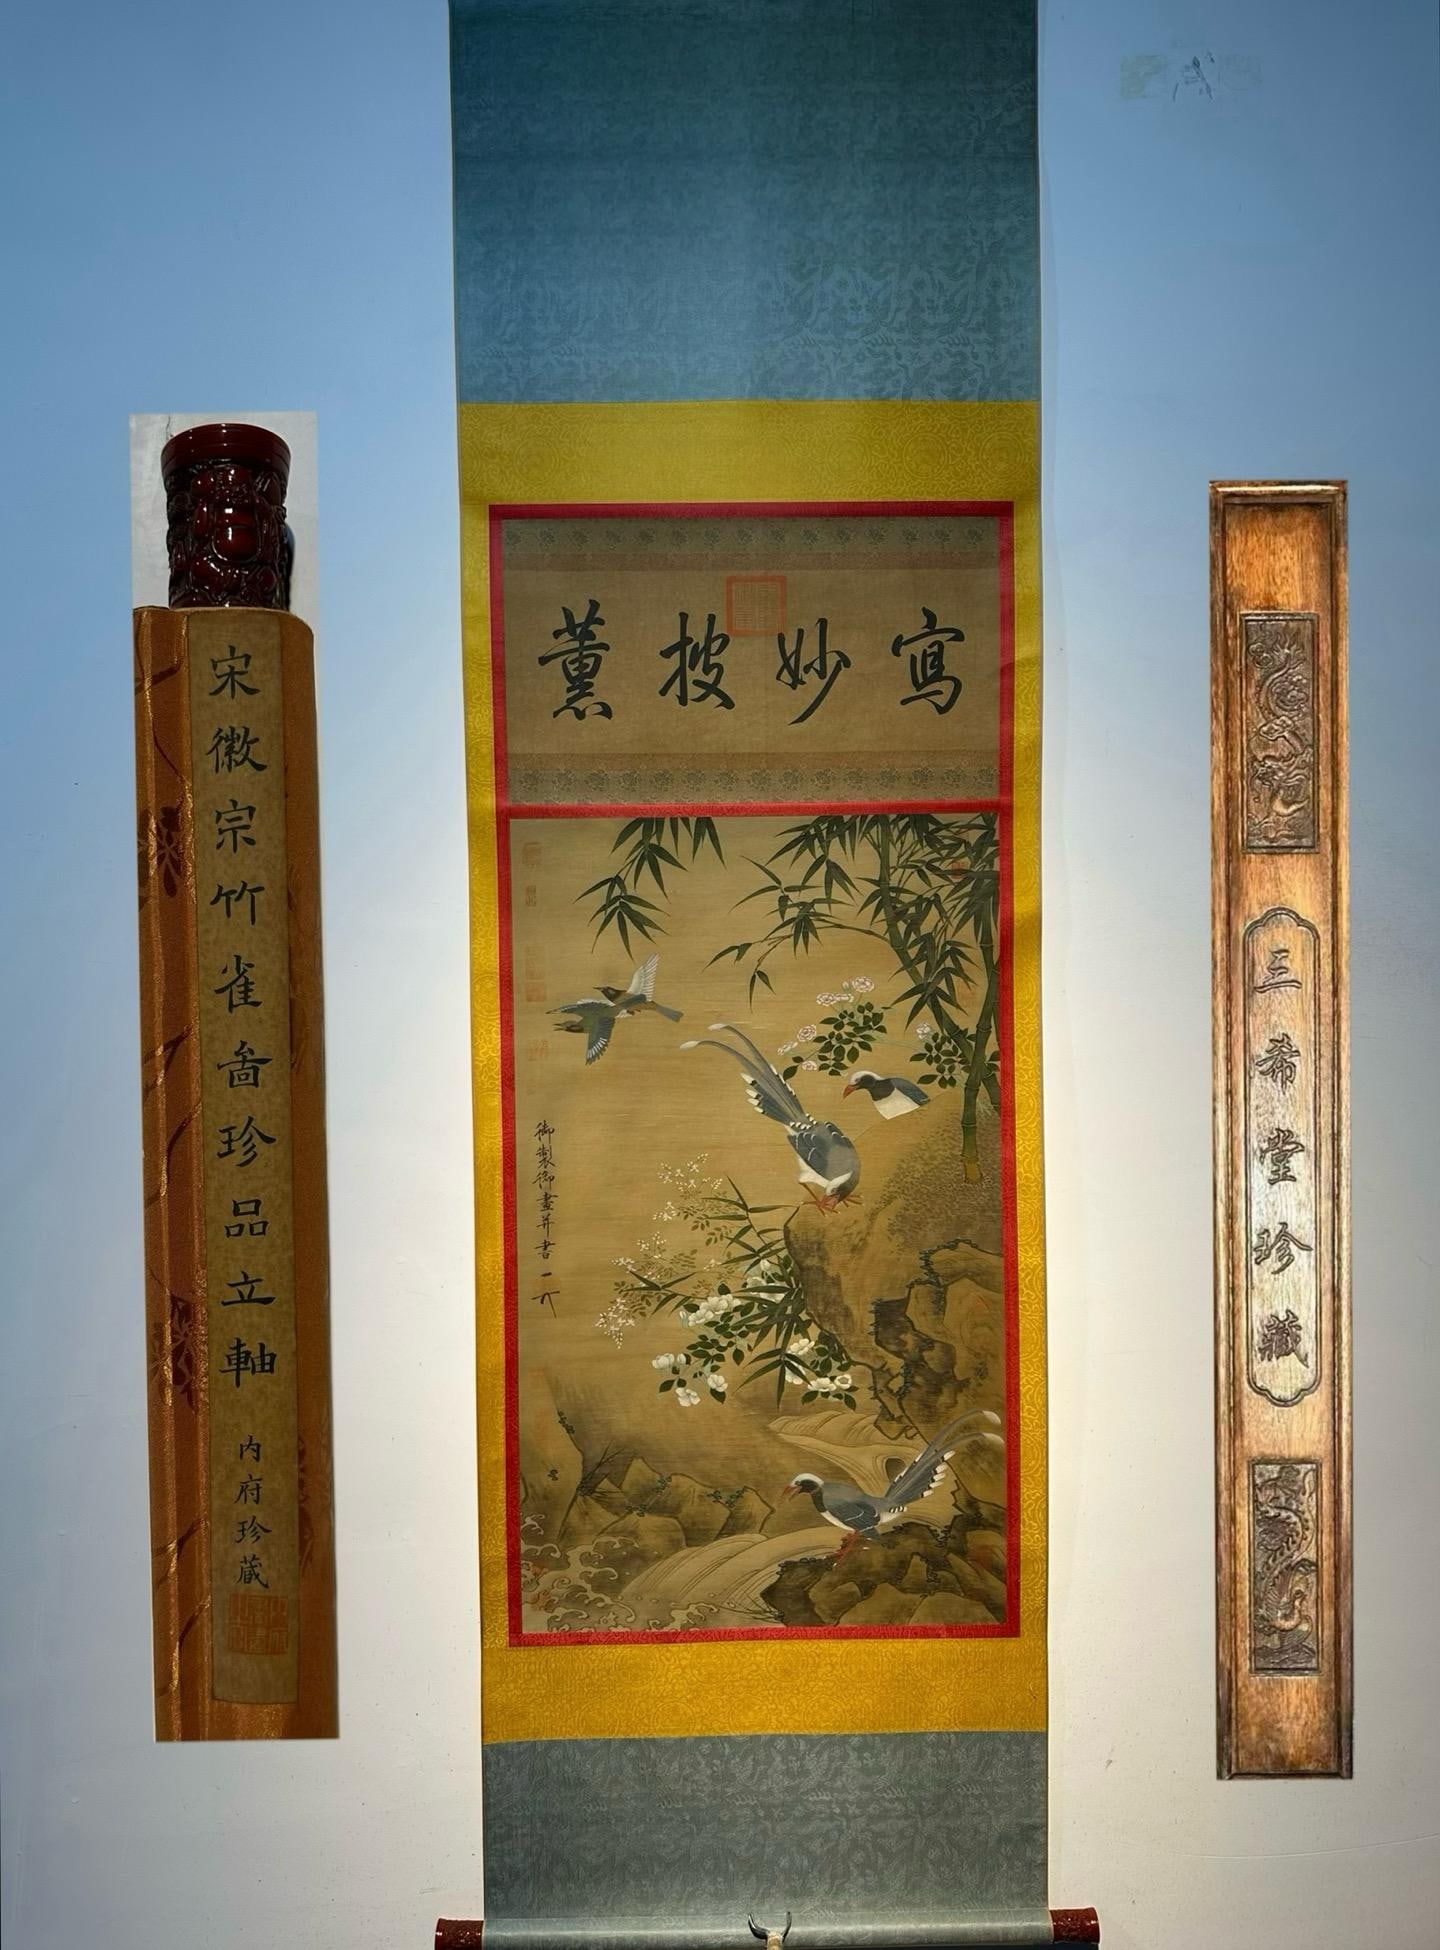 宋徽宗竹雀啚珍品立軸
内府珍蔵
寫妙披薰
御製御畫并書
三希堂珍藏